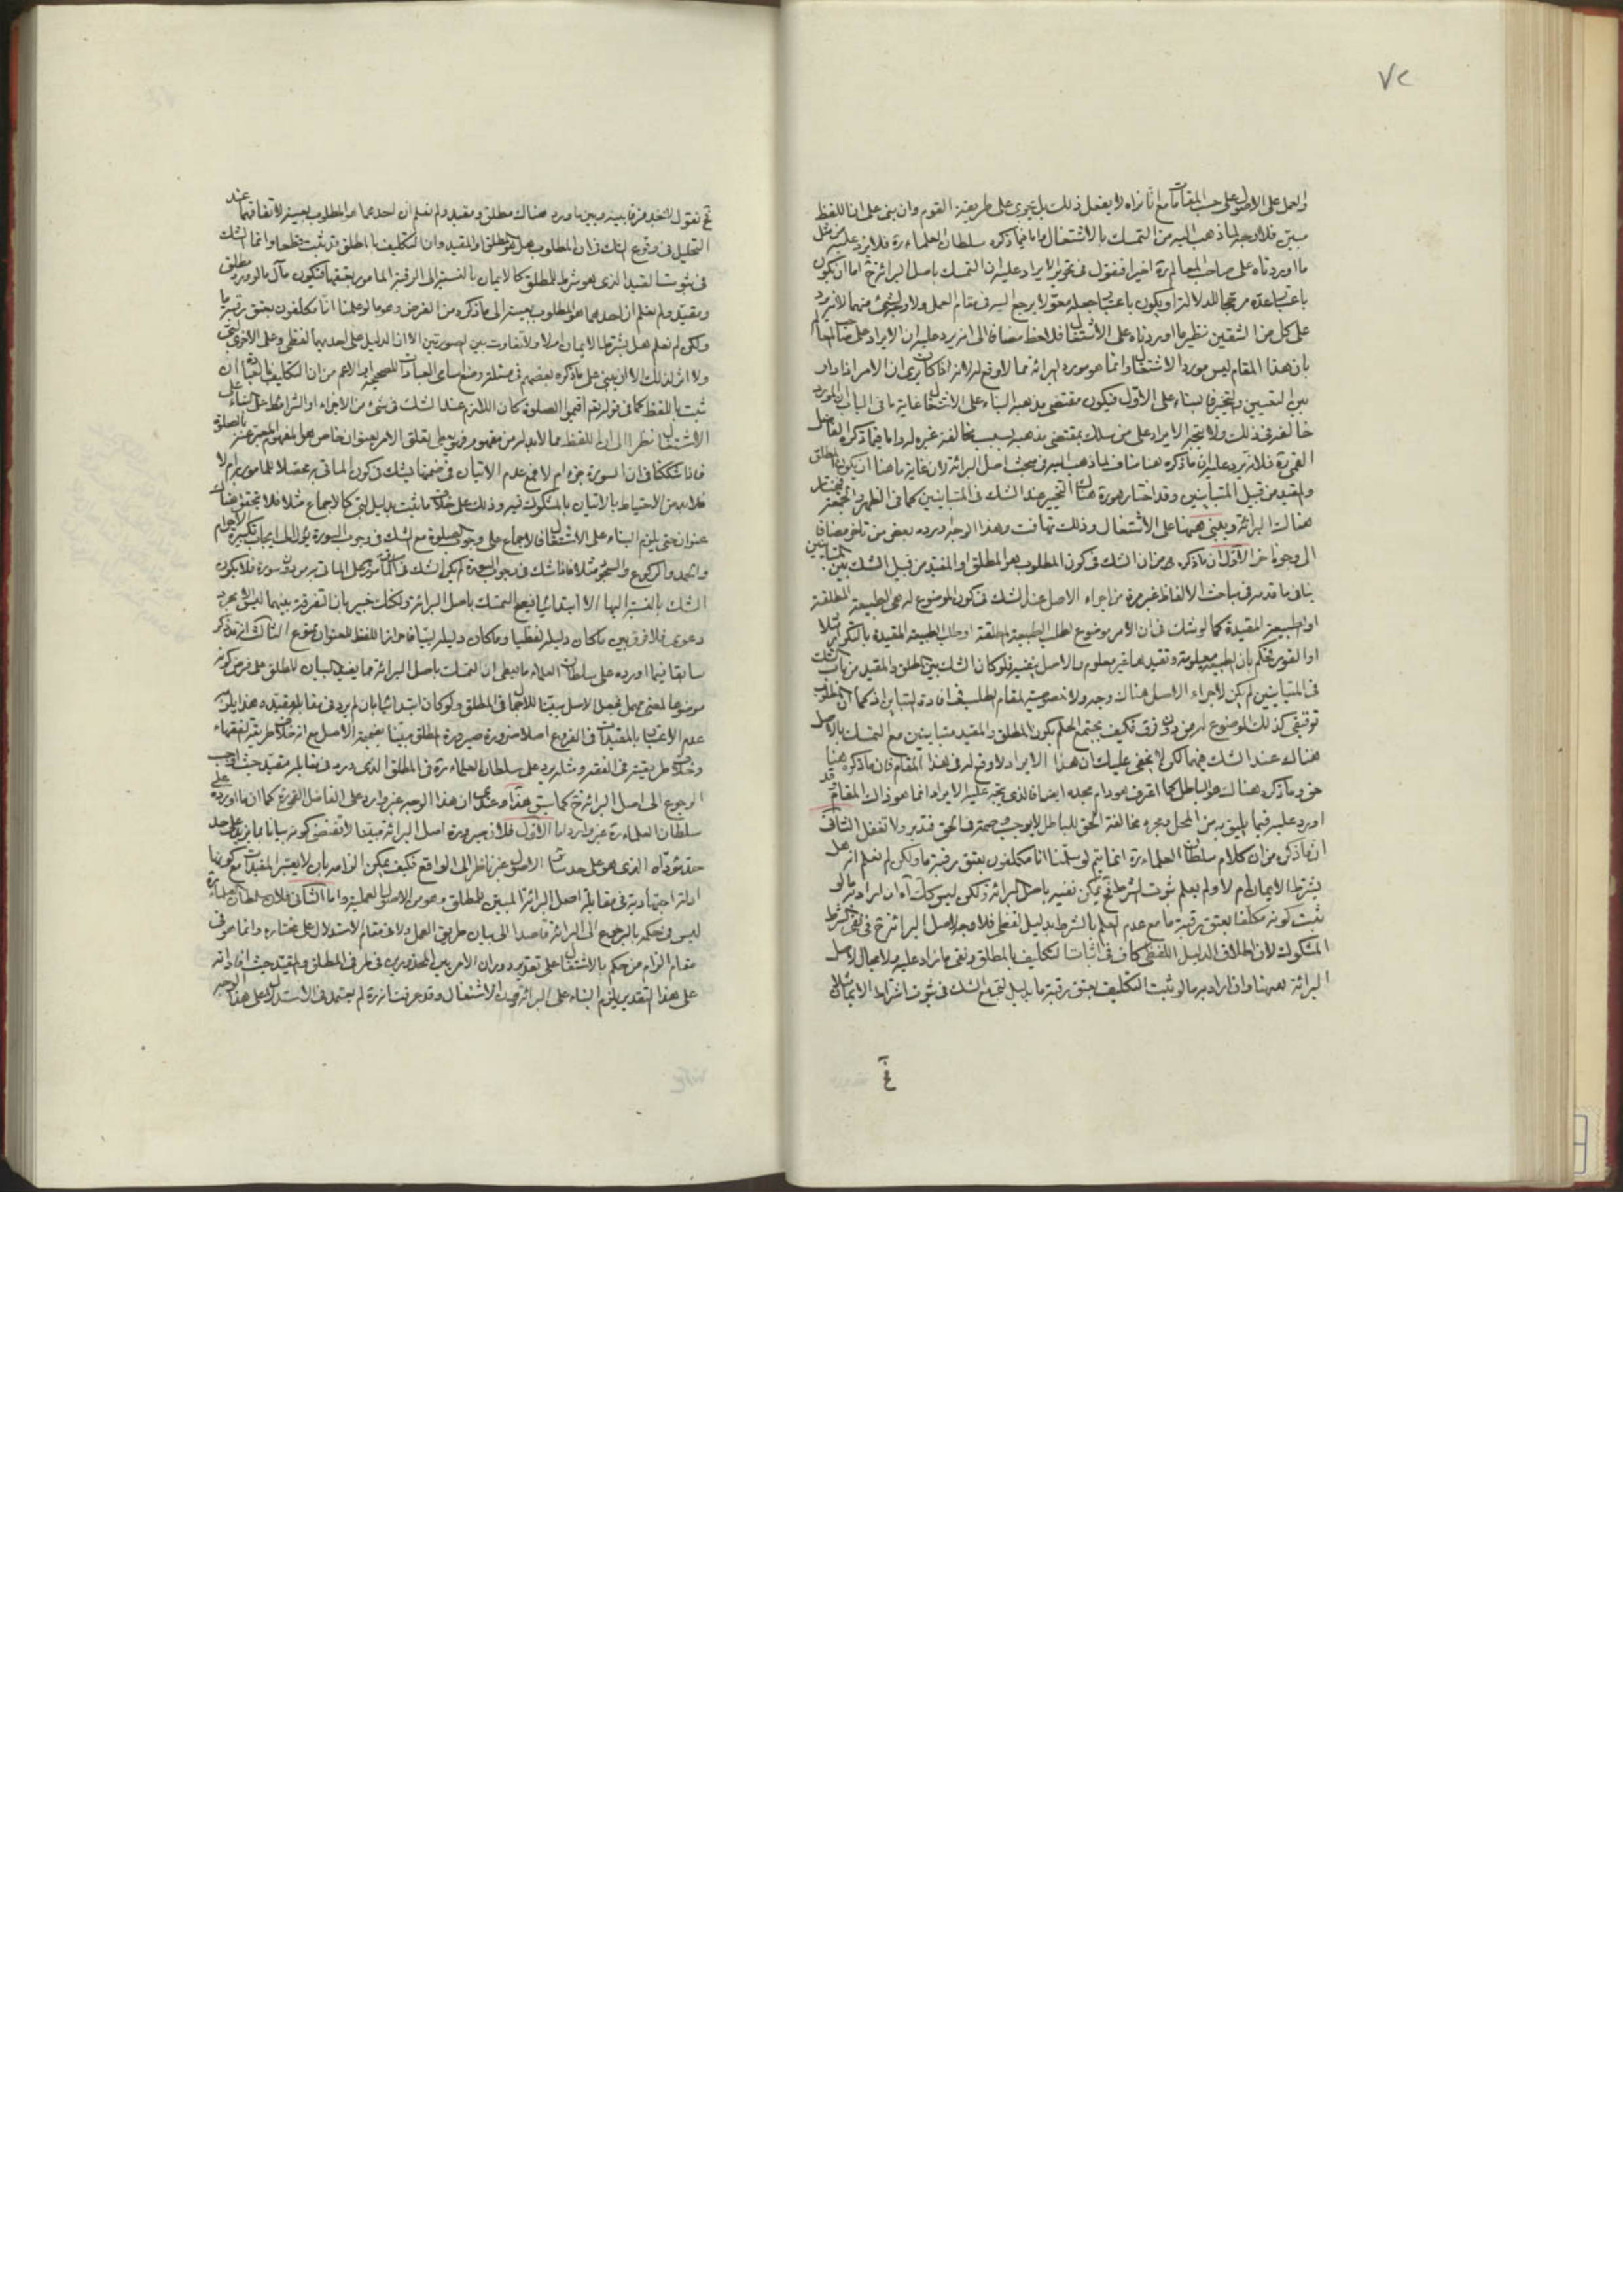 ٧٢
والعمل على الاصول على حسب المقامات مع انا نراه لا يفعل ذلك بل يجرى على طريقة القوم وان بنى على ان اللفظ
مبين فلا وجه لما ذهب اليه من التمسك بالاشتغال واما فيما ذكره سلطان العلماء ره فلانه يرد عليه مثل
ما اوردناه على صاحب المعالم ره اخيرا فنقول فى تحرير الايراد عليه ان التمسك باصل البرائة ح اما ان يكون
باعتبار عده مرجحا للدلالة او يكون باعتبار جعله معولا يرجع اليه فى مقام العمل ولا وجه لشئ منهما لانه يرد
على كل من الشقين نظير ما اوردناه على الاشتغال فلاحظ مضافا الى انه يرد عليه ان الايراد على صاحب المعالم
بان هذا المقام ليس مورد الاشتغال وانما هو مورد البرائة مما لا وقع له لانه اذا كان يرى ان الامر اذا دار
بين التعيين والتخيير فالبناء على الاول فيكون مقتضى مذهبه البناء على الاشتغال غاية ما فى الباب ان المورد
خالفه فى ذلك ولا يتجه الايراد على من سلك بمقتضى مذهبه بسبب مخالفة غيره له واما فيما ذكره الفاضل
القمى ره فلانه يرد عليه ان ما ذكره هنا مناف لما ذهب اليه فى مبحث اصل البرائة لان غاية ما هنا ان يكون المطلق
والمقيد من قبيل المتباينين وقد اختار هو ره هناك التخيير عند الشك فى المتباينين كما فى الظهر والجمعة فيختار
هناك البرائة ويبنى هيهنا على الاشتغال وذلك تهافت وهذا الوجه ورده بعض من تاخر مضافا
الى وجوه اخر الاول ان ما ذكره ره من ان الشك فى كون المطلوب هو المطلق او المقيد من قبيل الشك بين المتباينين
ينافى ما قدمه فى مباحث الالفاظ غير مرة من اجراء الاصل عند الشك فى كون الموضوع له هى الطبيعة المطلقة
او الطبيعة المقيدة كما لو شك فى ان الامر موضوع لطلب الطبيعة المطلقة او طلب الطبيعة المقيدة بالتكرار مثلا
او الفور فحكم بان الطبيعة معلومة وتقيدها غير معلوم والاصل ينفيه فلو كان الشك بين المطلق والمقيد من باب الشك
فى المتباينين لم يكن لاجراء الاصل هناك وجه ولا خصوصية لمقام الطلب فى افادة التباين اذ كما ان المطلوب
توقيفى كذلك الموضوع له من دون فرق فكيف يجتمع الحكم بكون المطلق والمقيد متباينين مع التمسك بالاصل
هناك عند الشك فيهما لكن لا يخفى عليك ان هذا الايراد لا وقع له فى هذا المقام فان ما ذكره هنا
حق وما ذكره هناك هو الباطل كما اعترف هو دام مجده ايضا فالذى يتجه عليه الايراد انما هو ذاك المقام قد
اورد عليه فيما يليق به من المحل ومجرد مخالفة الحق للباطل لا يوجب وصمة فى الحق فتدبر ولا تغفل الثانى
ان ما ذكره من ان كلام سلطان العلماء ره انما يتم لو سلمنا انا مكلفون بعتق رقبة ما ولكن لم نعلم انه هل
يشترط الايمان ام لا ولم يعلم ثبوت الشرط فح يمكن نفيه باصل البرائة ولكن ليس كك آه ان اراد به ما لو
ثبت كونه مكلفا بعتق رقبة ما مع عدم العلم بالشرط بدليل لفظى فلا وجه لاصل البرائة ح فى نفى الشرط
المشكوك لان اطلاق الدليل اللفظى كاف فى اثبات التكليف بالمطلق ونفى ما زاد عليه ولا مجال لاصل
البرائة هيهنا وان اراد به ما لو ثبت التكليف بعتق رقبة ما بدليل لبى مع الشك فى ثبوت اشتراط الايمان
فح نقول لا نجد فرقا بينه وبين ما ورد هناك مطلق ومقيد ولم نعلم ان احدهما هو المطلوب بعينه لاتفاقهما عند
التحليل فى وقوع الشك فى ان المطلوب هل هو المطلق او المقيد وان التكليف بالمطلق قد ثبت قطعا وانما الشك
فى ثبوت القيد الذى هو شرط للمطلق كالايمان بالنسبة الى الرقبة المامور بعتقها فيكون مآل ما لو ورد مطلق
ومقيد ولم نعلم ان احدهما هو المطلوب بعينه الى ما ذكره من الفرض وهو ما لو علمنا انا مكلفون بعتق رقبة ما
ولكن لم نعلم هل يشترط الايمان ام لا ولا تفاوت بين الصورتين الا ان الدليل على احديهما لفظى وعلى الاخرى لبى
ولا اثر لذلك الا ان يبنى على ما ذكره بعضهم فى مسئلة وضع اسامى العبادات للصحيحة او الاعم من ان التكليف بالعبادة ان
ثبت باللفظ كما فى قوله تع اقيموا الصلوة كان اللازم عند الشك فى شئ من الاجزاء او الشرائط هو البناء على
الاشتغال نظرا الى ان اللفظ مما لابد له من مفهوم فيه يعلم تعلق الامر بعنوان خاص هو المفهوم المعبر عنه بالصلوة
فاذا شككنا فى ان السورة جزء ام لا فمع عدم الاتيان فى ضمنها يشك فى كون الماتى به محصلا للمامور به ام لا
فلابد من الاحتياط بالاتيان بالمشكوك فيه وذلك على خلاف ما ثبت بدليل لبى كالاجماع مثلا فلا يتحقق هناك
عنوان حتى يلزم البناء على الاشتغال فالاجماع على وجوب الصلوة مع الشك فى وجوب السورة يؤول الى ايجاب تكبيرة الاحرام
والحمد والركوع والسجود مثلا فاذا شك فى وجوب السورة لم يكن الشك فى تحقق المامور به فى الماتى به من دون سورة فلا يكون
الشك بالنسبة اليها الا ابتدائيا فيصح التمسك باصل البرائة ولكنك خبير بان التفرقة بينهما ليس الا مجرد
دعوى فلا فرق بين ما كان دليله لفظيا وما كان دليله لبيا فاحراز اللفظ للعنوان ممنوع الثالث انه قد ذكر
سابقا فيما اورده على سلطان العلماء ما يعطى ان التمسك باصل البرائة مما يفيد البيان للمطلق على فرض كونه
موضوعا لمعنى مهمل فجعل الاصل مبينا للاجمال فى المطلق ولو كان ابتدائيا بان لم يرد فى مقابله مقيد وهذا يلزمه
عدم الاعتبار بالمقيدات فى الفروع اصلا ضرورة صيرورة المطلق مبينا بضميمة الاصل مع انه خلاف طريقة الفقهاء
وخلاف طريقته فى الفقه ومثله يرد على سلطان العلماء ره فى المطلق الذى ورد فى مقابله مقيد حيث اوجب
الرجوع الى اصل البرائة ح كما سبق هذا وعندى ان هذا الوجه غير وارد على الفاضل القمى ره كما ان ما اورده على
سلطان العلماء ره غير وارد اما الاول فلان صيرورة اصل البرائة مبينا لا تقتضى كونه بيانا بما يزيد على حد
مؤداه الذى هو على حد سائر الاصول غير ناظر الى الواقع فكيف يمكن الزامه بان لا يعتبر المقيدات مع كونها
ادلة اجتهادية فى مقابلة اصل البرائة المبين للمطلق وهو من الاصول العملية واما الثانى فلان سلطان العلماء ره
ليس فى حكمه بالرجوع الى البرائة قاصدا الى بيان طريق العمل ولا فى مقام الاستدلال على مختاره وانما هو فى
مقام الزام من حكم بالاشتغال على تقدير دوران الامر بين المحذورين فى طرفى المطلق والمقيد حيث افاد انه
على هذا التقدير يلزم البناء على البرائة دون الاشتغال وقد عرفت انه ره لم يعتمد فى الاستدلال على هذا الوجه